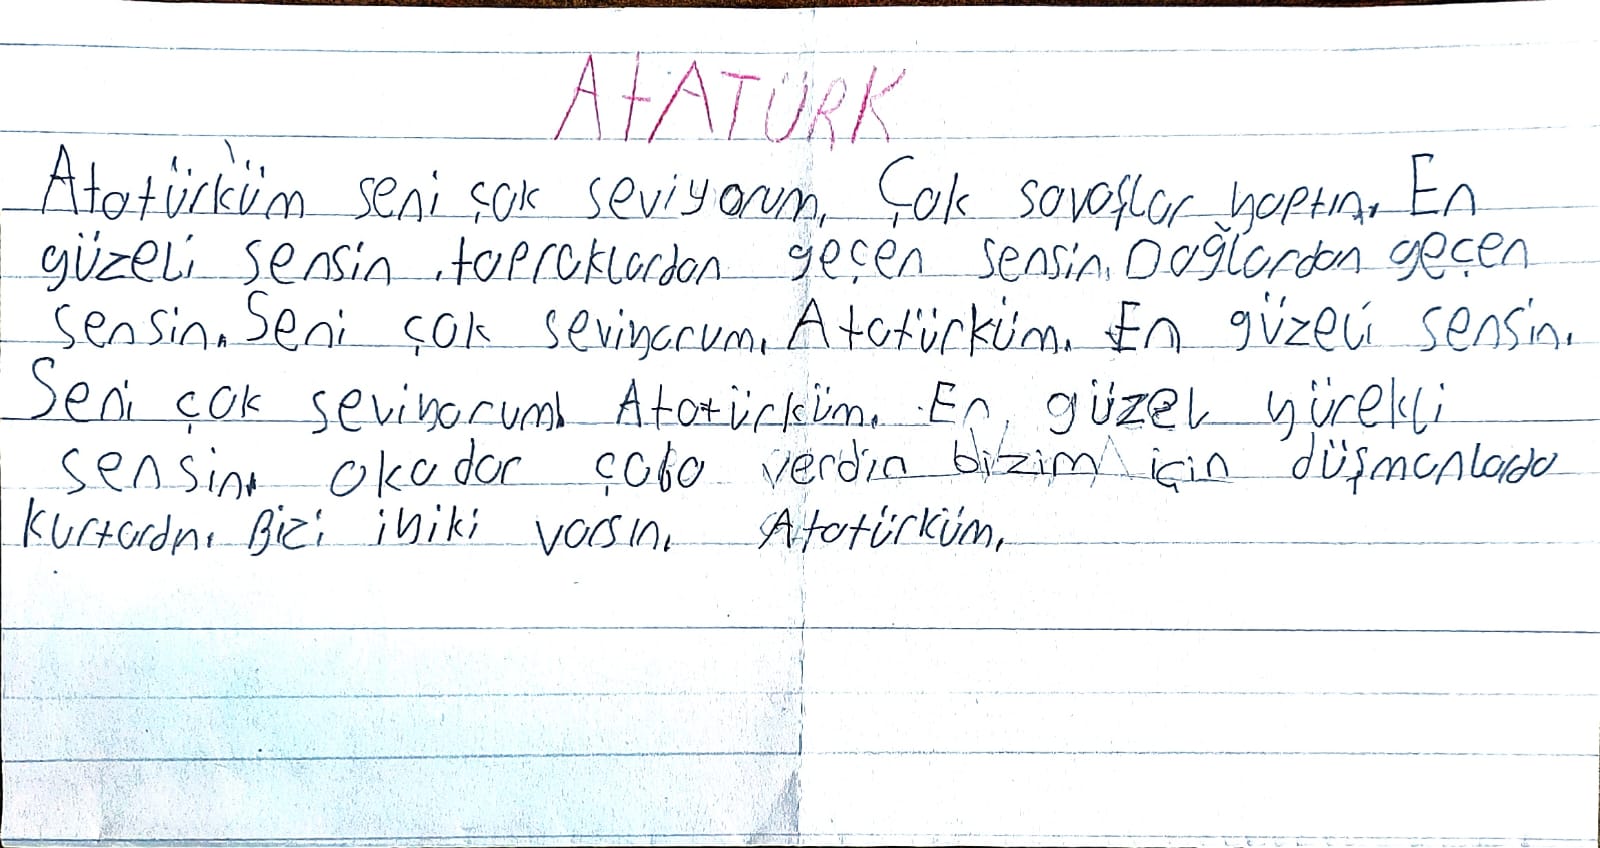 ATATÜRK
Atatürküm seni çok seviyorum. Çok savaşlar yaptın. En
güzeli sensin. topraklardan geçen sensin. Dağlardan geçen
sensin. Seni çok seviyorum. Atatürküm. En güzeli sensin.
Seni çok seviyorum. Atatürküm. En güzel yürekli
sensin. okadar çaba verdin bizim için düşmanlada
kurtardn. Bizi iyiki varsın. Atatürküm.